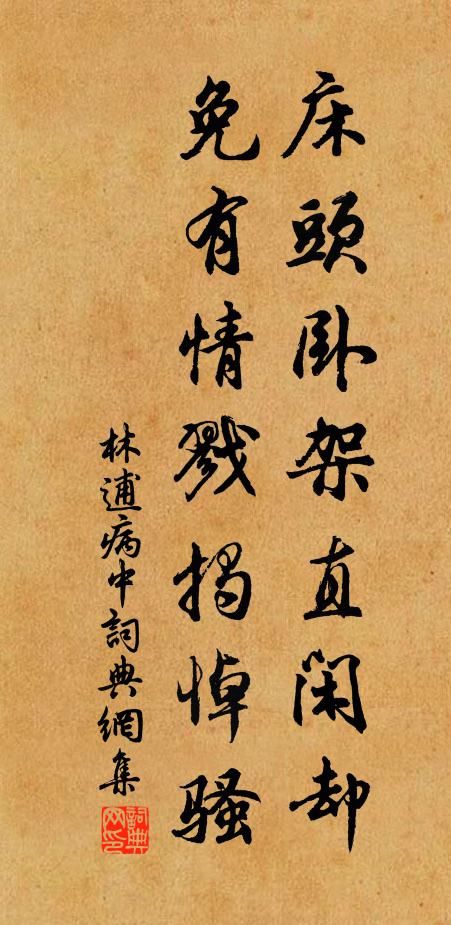 床頭卧架直閑却
免有情戮揭悼騷
林逋病中詞典網集
詞典网印